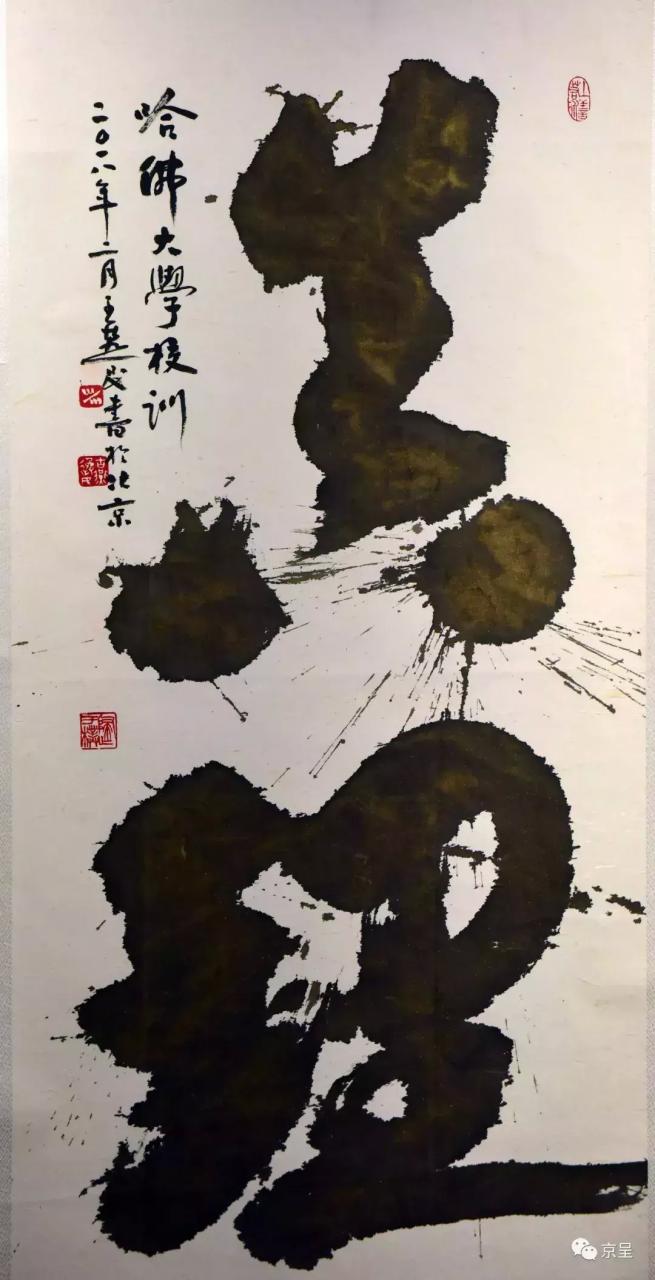 真理
哈佛大學校训
二〇一八年二月王民書於北京
京呈